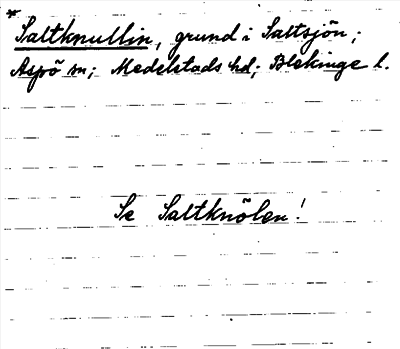 * Saltknullin, grund i Saltsjön;
Aspö sn; Medelstads hd; Blekinge l.
Se Saltknölen!